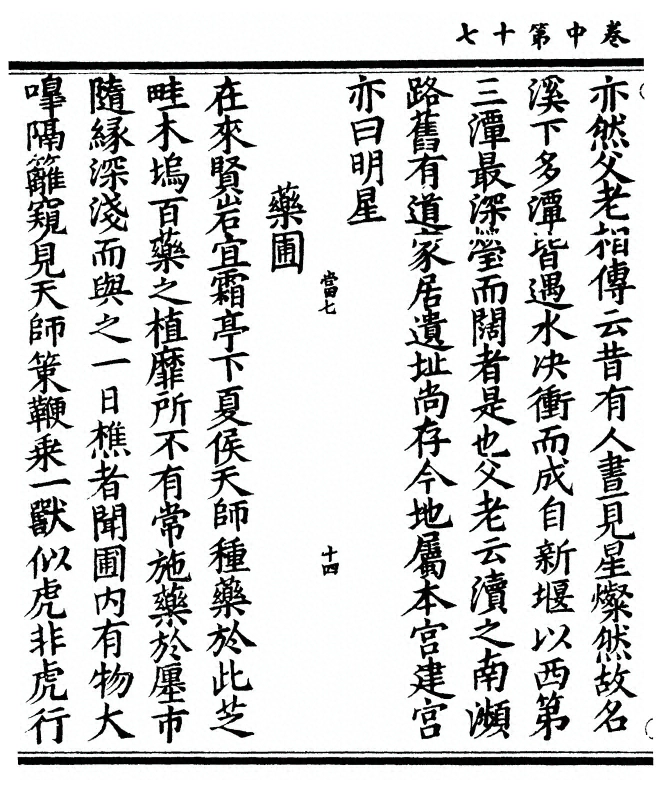 卷中第十七
亦然父老相傳云昔有人晝見星燦然故名
溪下多潭皆遇水决衝而成自新堰以西第
三潭最深瑩而闊者是也父老云瀆之南瀕
路舊有道家居遺址尚存今地屬本宮建宮
亦曰明星
當七
十四
藥圃
在來賢岩宜霜亭下夏侯天師種藥於此芝
畦木塢百藥之植靡所不有常施藥於廛市
隨緣深淺而與之一日樵者聞圃内有物大
嘷隔籬窺見天師策鞭乘一獸似虎非虎行